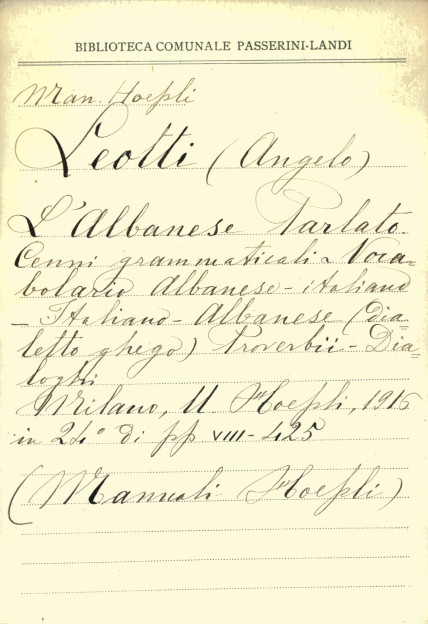 BIBLIOTECA COMUNALE PASSERINI-LANDI
Man. Hoepli
Leotti (Angelo)
L'Albanese Parlato.
Cenni grammaticali e Voca=
bolario Albanese - italiano
- Italiano - Albanese (dia=
letto ghego) Proverbii - Dia=
loghi
Milano, U. Hoepli, 1916
in 24° di pp VIII - 425
(Manuali Hoepli)